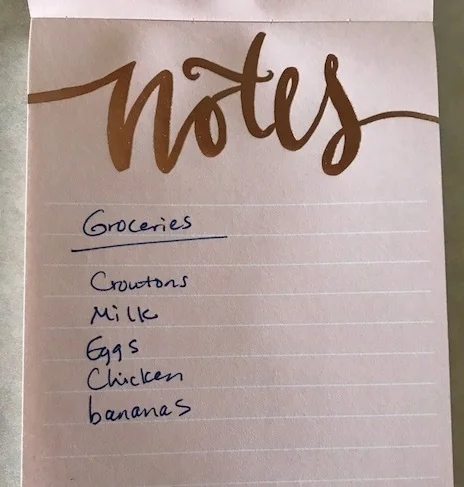 notes
Groceries
Croutons
Milk
Eggs
Chicken
bananas